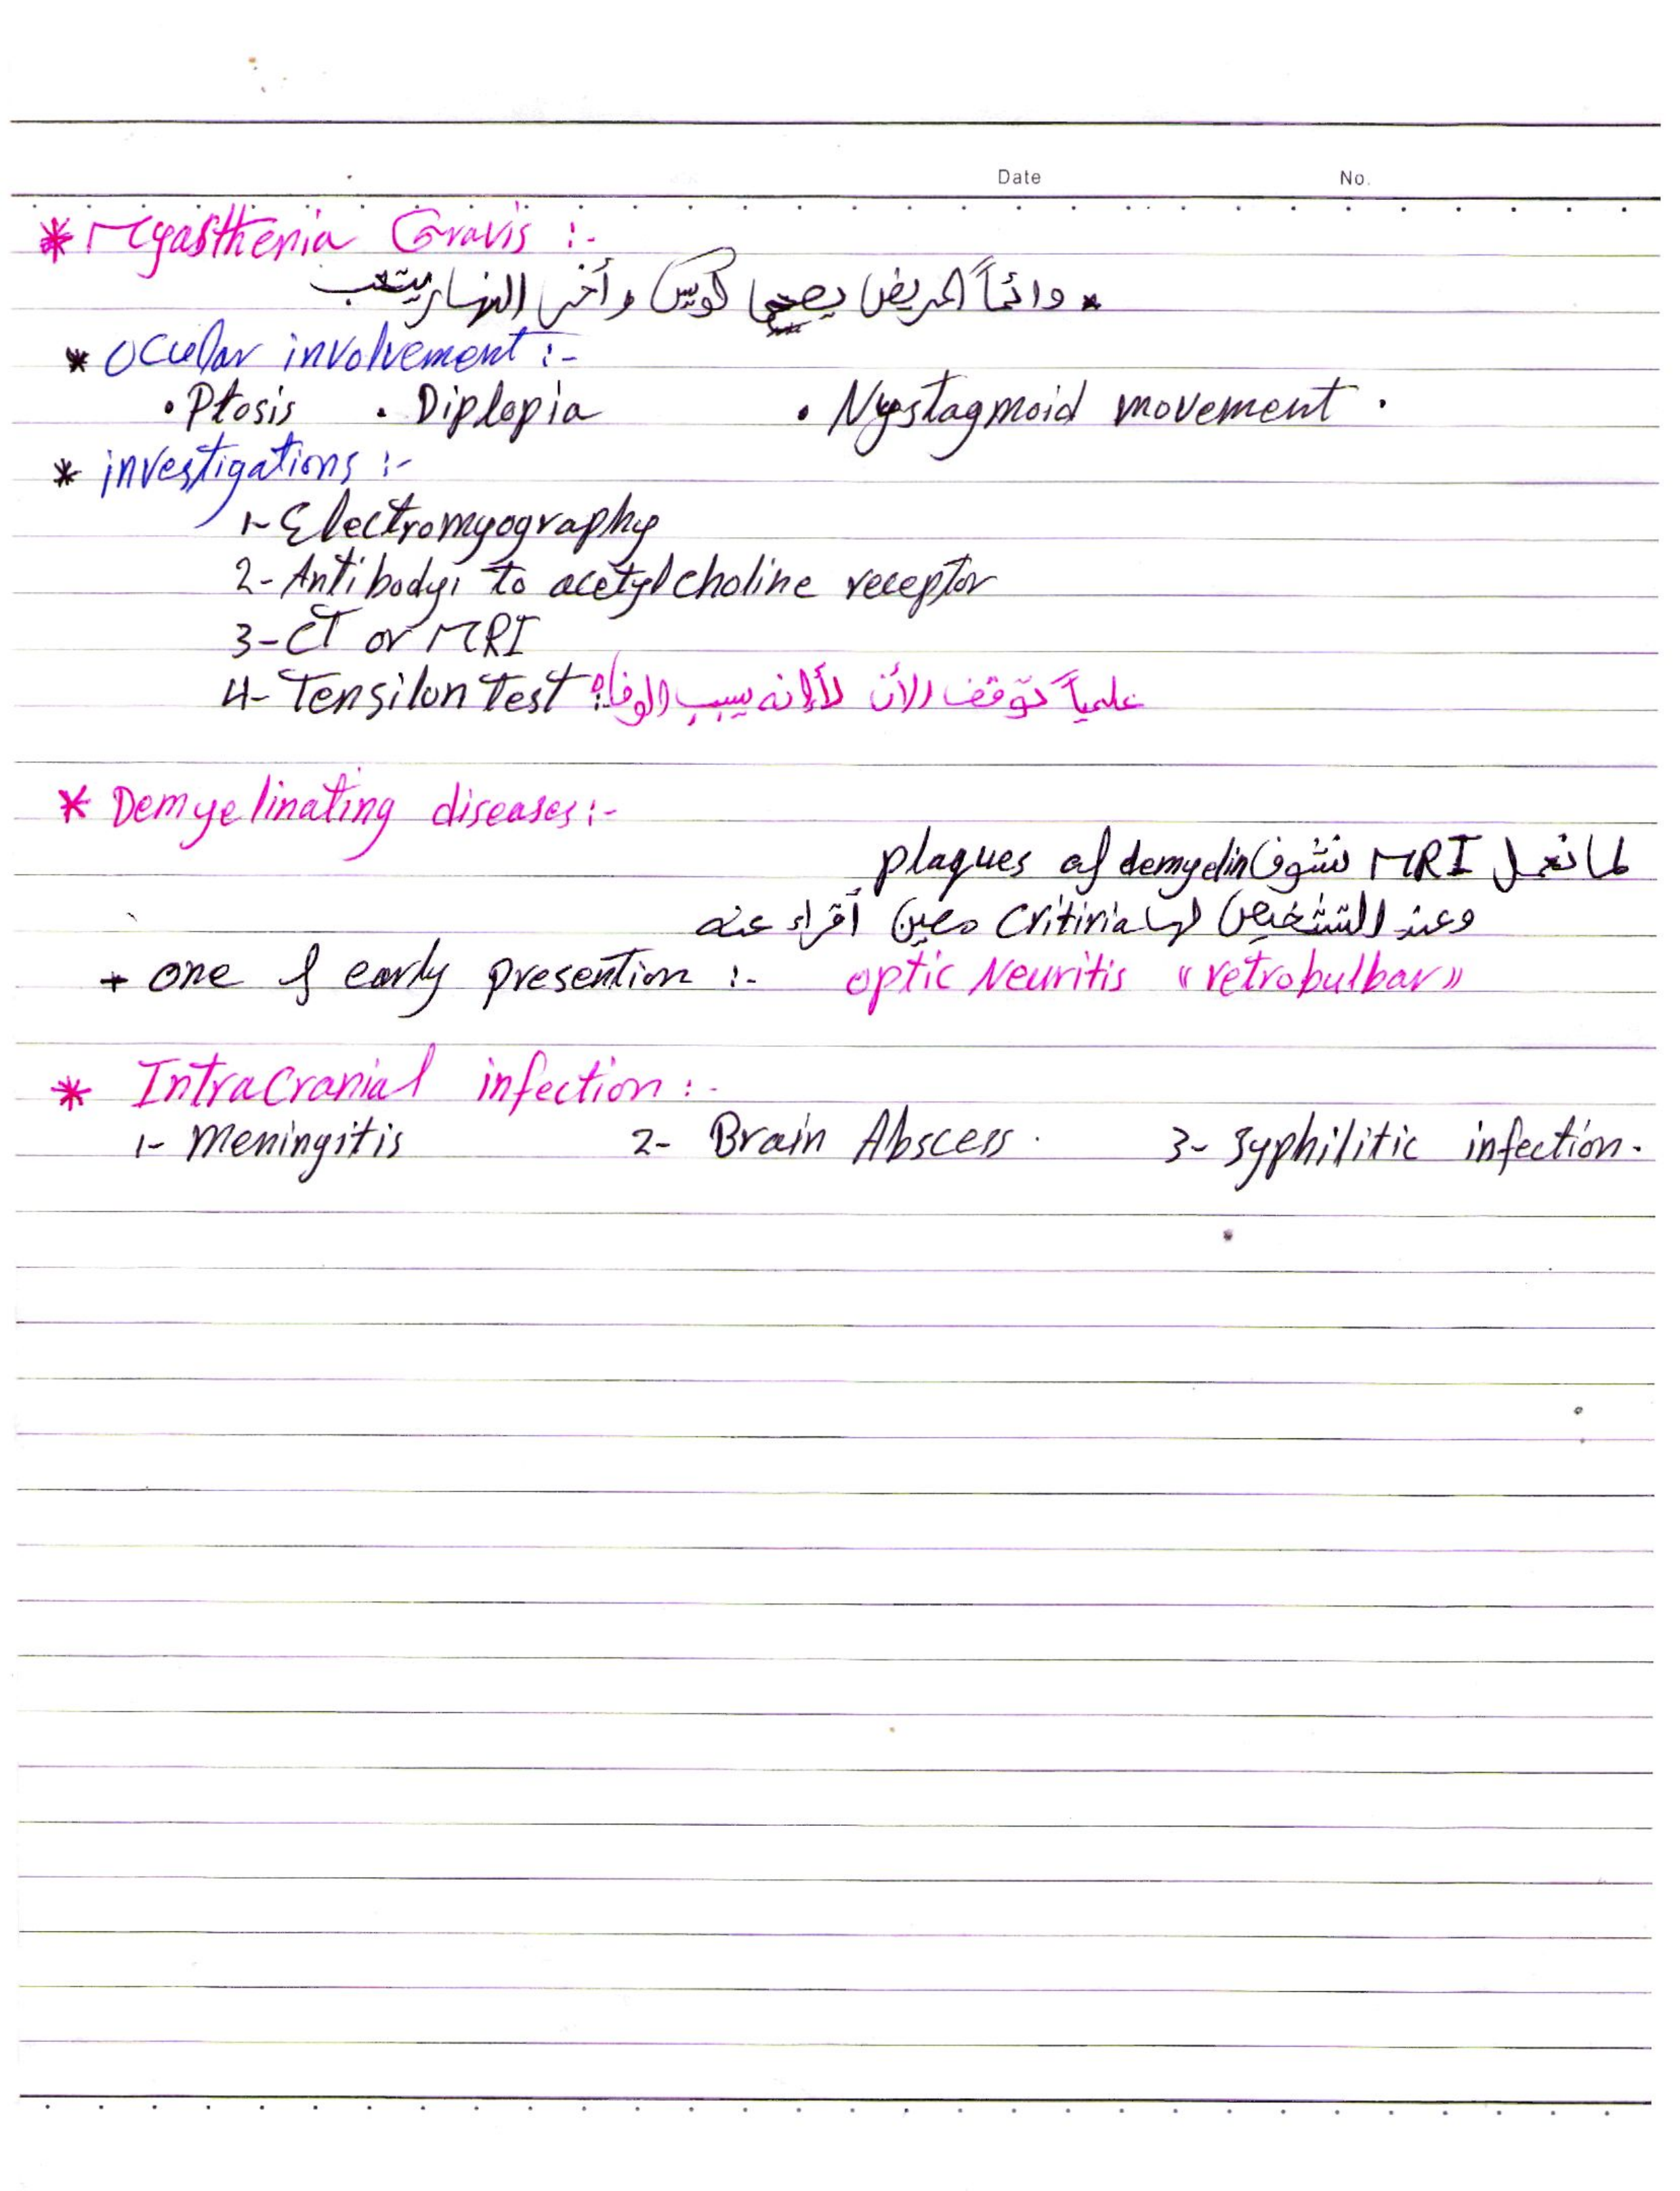 Date No.
* Myasthenia Gravis :-
* دائماً المريض يصحى كويس وأخر النهار يتعب
* Ocular involvement :-
• Ptosis • Diplopia • Nystagmoid movement .
* investigations :-
1- Electromyography
2- Antibodys to acetylcholine receptor
3- CT or MRI
4- Tensilon Test :- علمياً توقف الأن لأنه يسبب الوفاه
* Demyelinating diseases :-
لما نعمل MRI نشوف plaques of demyelin
وعند التشخيص لها Critiria معين أقراء عنه
+ one of early presention :- optic Neuritis « retrobulbar »
* IntraCranial infection :-
1- Meningitis 2- Brain Abscess . 3- Syphilitic infection .